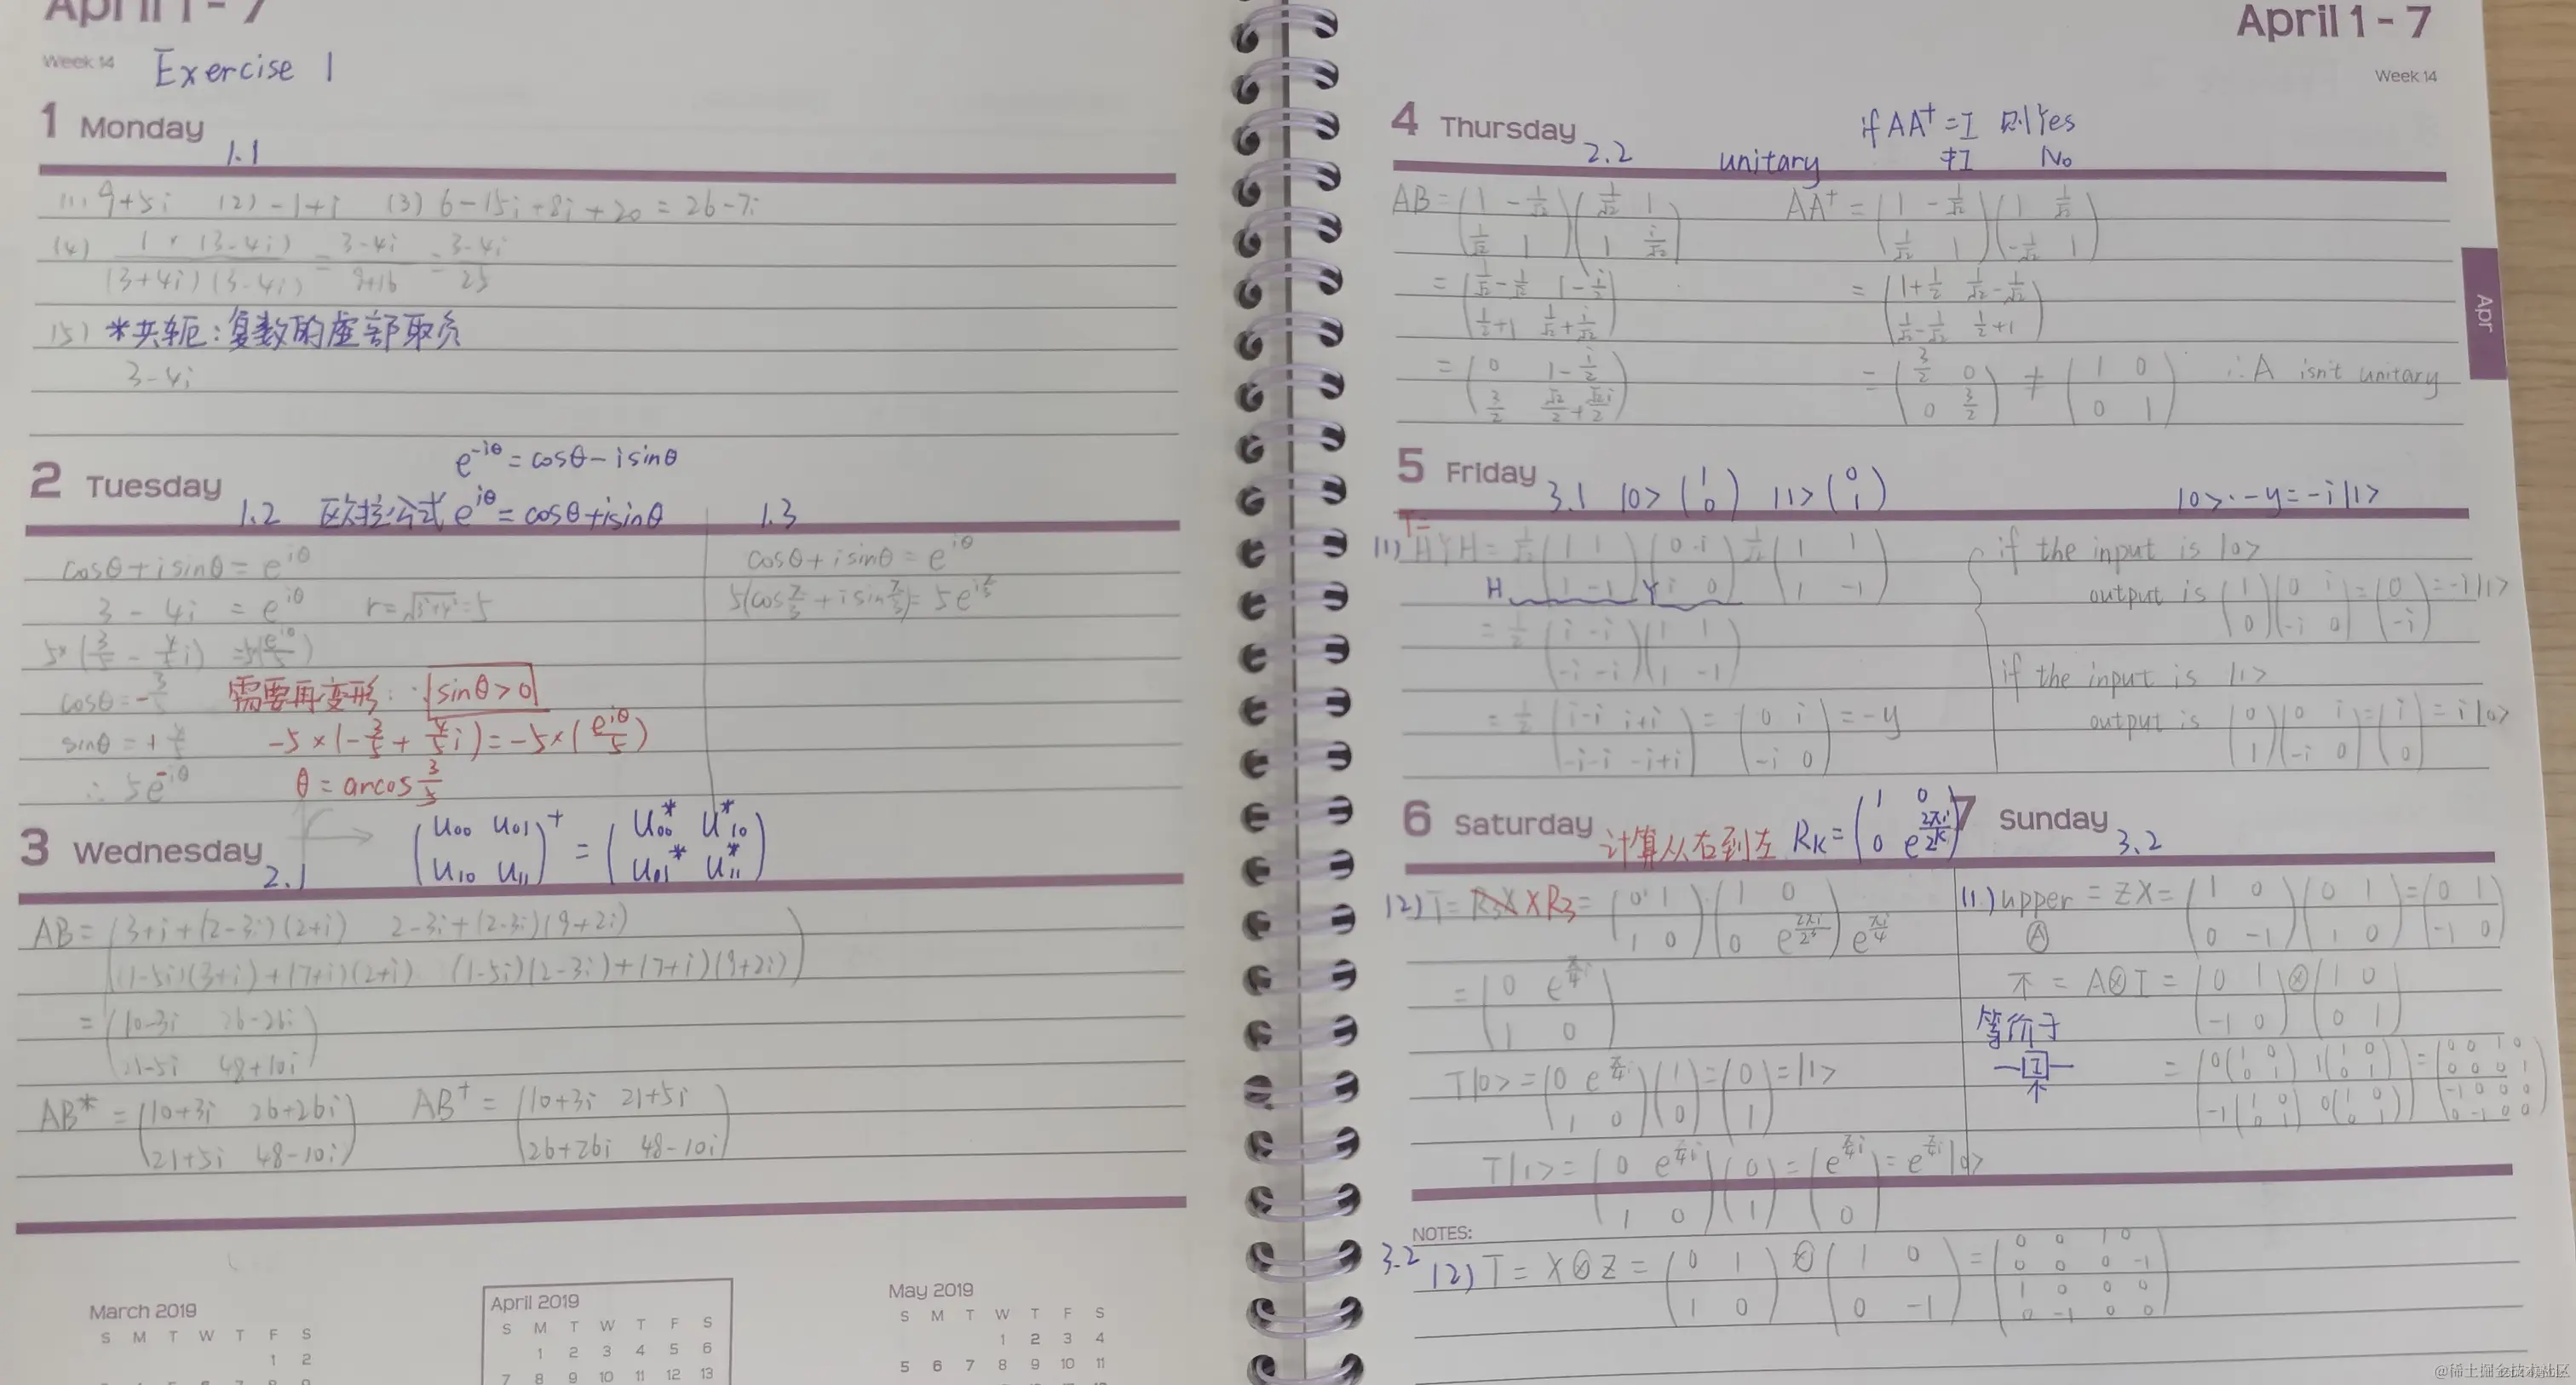 April 1 - 7
Week 14 Exercise 1
1 Monday
1.1
(1) 9+5i (2) -1+i (3) 6-15i+8i+20 = 26-7i
(4) 1×(3-4i) / (3+4i)(3-4i) = 3-4i / 9+16 = 3-4i / 25
(5) *共轭:复数的虚部取负
3-4i
e^{-iθ} = cosθ - isinθ
2 Tuesday
1.2 欧拉公式 e^{iθ} = cosθ+isinθ 1.3
cosθ+isinθ = e^{iθ}
3 - 4i = e^{iθ} r=√(3²+4²)=5
5×(3/5 - 4/5 i) = 5(e^{iθ}/5)
cosθ = -3/5 需要再变形: sinθ>0
sinθ = +4/5 -5×(-3/5 + 4/5 i) = -5×(e^{iθ}/5)
∴ 5e^{-iθ} θ = arcos 3/5
cosθ+isinθ = e^{iθ}
3 Wednesday
2.1 (u00 u01 / u10 u11)^† = (u00* u10* / u01* u11*)
AB = (3+i+(2-3i)(2+i) 2-3i+(2-3i)(9+2i)
(1-5i)(3+i)+(7+i)(2+i) (1-5i)(2-3i)+(7+i)(9+2i))
= (10-3i 26-26i
21-5i 48+10i)
AB* = (10+3i 26+26i AB† = (10+3i 21+5i
21+5i 48-10i) 26+26i 48-10i)
March 2019
S M T W T F S
1 2
April 2019
S M T W T F S
1 2 3 4 5 6
7 8 9 10 11 12 13
May 2019
S M T W T F S
1 2 3 4
5 6 7 8 9 10 11
April 1 - 7
Week 14
4 Thursday
2.2 unitary if AA† = I 则Yes
≠I No
AB = (1 -1/√2 / 1/√2 1)(1/√2 1 / 1 i/√2) AA† = (1 -1/√2 / 1/√2 1)(1 1/√2 / -1/√2 1)
= (1/√2-1/√2 1-i/2 / 1/2+1 1/√2+i/√2) = (1+1/2 1/√2-1/√2 / 1/√2-1/√2 1/2+1)
= (0 1-i/2 / 3/2 √2/2+√2i/2) = (3/2 0 / 0 3/2) ≠ (1 0 / 0 1) ∴A isn't unitary
Apr
5 Friday
3.1 |0> (1 / 0) |1> (0 / 1) |0>·-y=-i|1>
T=
(1) HYH = 1/√2 (1 1 / 1 -1)(0 -i / i 0) 1/√2 (1 1 / 1 -1)
H Y
= 1/2 (i -i / -i -i)(1 1 / 1 -1)
= 1/2 (i-i i+i / -i-i -i+i) = (0 i / -i 0) = -y
if the input is |0>
output is (1 / 0)(0 i / -i 0) = (0 / -i) = -i|1>
if the input is |1>
output is (0 / 1)(0 i / -i 0) = (i / 0) = i|0>
6 Saturday 计算从右到左 R_K = (1 0 / 0 e^{2πi/2^K})
(2) T = R3X XR3 = (0 1 / 1 0)(1 0 / 0 e^{2πi/2^3}) e^{πi/4}
= (0 e^{π/4 i} / 1 0)
T|0> = (0 e^{π/4 i} / 1 0)(1 / 0) = (0 / 1) = |1>
T|1> = (0 e^{π/4 i} / 1 0)(0 / 1) = (e^{π/4 i} / 0) = e^{π/4 i}|0>
7 Sunday
3.2
(1) upper = ZX = (1 0 / 0 -1)(0 1 / 1 0) = (0 1 / -1 0)
A
不 = A⊗I = (0 1 / -1 0)⊗(1 0 / 0 1)
等价于
I
不
= (0(1 0 / 0 1) 1(1 0 / 0 1) / -1(1 0 / 0 1) 0(1 0 / 0 1)) = (0 0 1 0 / 0 0 0 1 / -1 0 0 0 / 0 -1 0 0)
NOTES:
3.2 (2) T = X⊗Z = (0 1 / 1 0)⊗(1 0 / 0 -1) = (0 0 1 0 / 0 0 0 -1 / 1 0 0 0 / 0 -1 0 0)
@稀土掘金技术社区